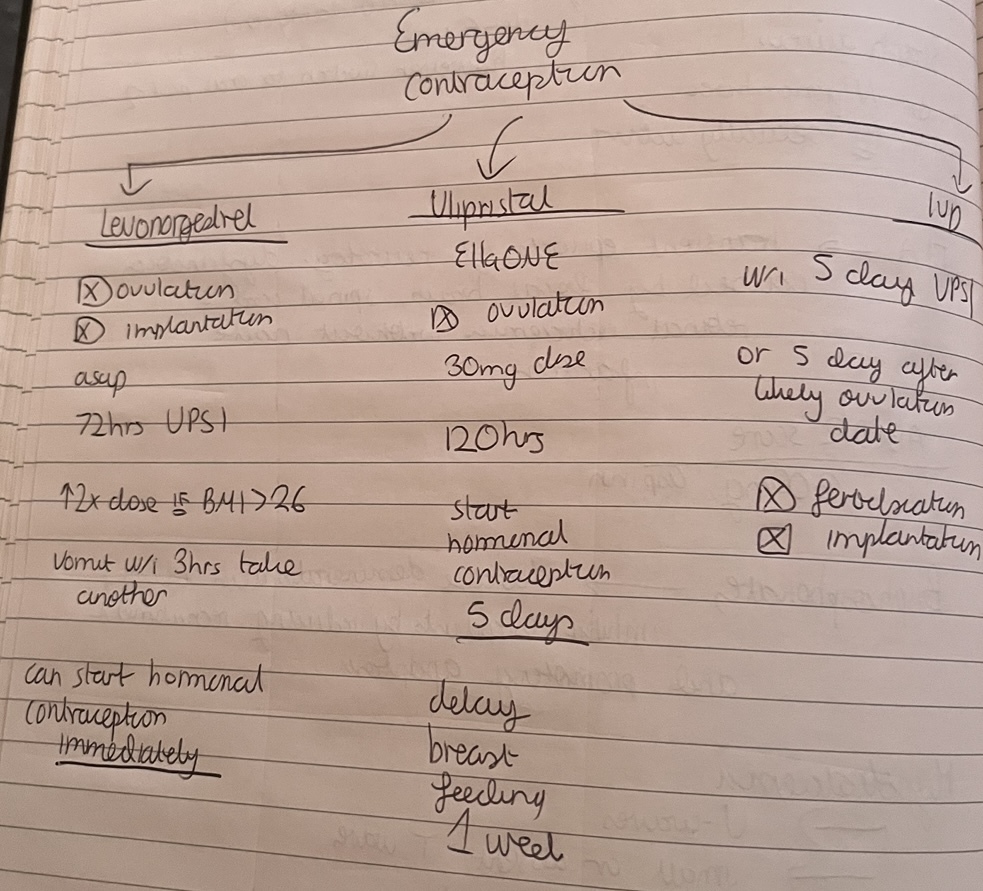 Emergency
contraception
Levonorgedrel
ⓧ ovulation
ⓧ implantation
asap
72hrs UPSI
↑2x dose if BMI > 26
Vomit w/i 3hrs take
another
can start hormonal
contraception
immediately
Ulipristal
EllaONE
ⓧ ovulation
30mg dose
120hrs
start
hormonal
contraception
5 days
delay
breast
feeding
1 week
IUD
w/i 5 day UPSI
or 5 day after
likely ovulation
date
ⓧ fertilisation
ⓧ implantation